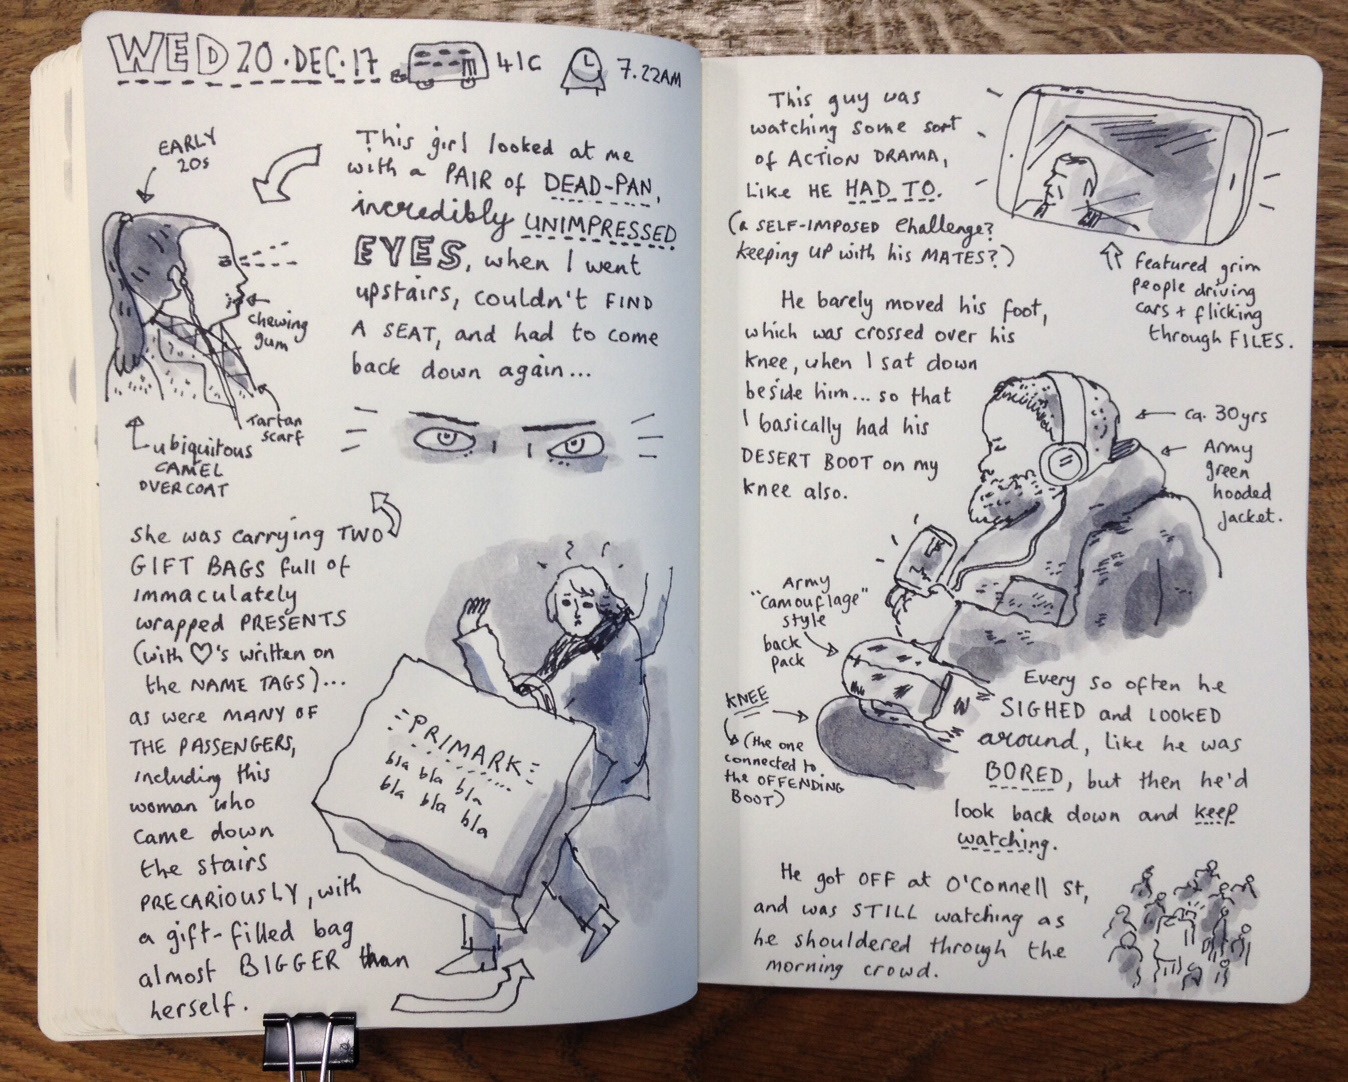 WED 20·DEC·17 41C 7.22AM
EARLY
20s
This girl looked at me
with a PAIR of DEAD-PAN,
incredibly UNIMPRESSED
EYES, when I went
upstairs, couldn't FIND
A SEAT, and had to come
back down again...
chewing
gum
Tartan
scarf
ubiquitous
CAMEL
OVERCOAT
She was carrying TWO
GIFT BAGS full of
immaculately
wrapped PRESENTS
(with ♡'s written on
the NAME TAGS)...
as were MANY OF
THE PASSENGERS,
including this
woman who
came down
the stairs
PRECARIOUSLY, with
a gift-filled bag
almost BIGGER than
herself.
PRIMARK
bla bla bla
bla bla bla
This guy was
watching some sort
of ACTION DRAMA,
Like HE HAD TO.
(a SELF-IMPOSED challenge?
keeping UP with his MATES?)
featured grim
people driving
cars + flicking
through FILES.
He barely moved his foot,
which was crossed over his
knee, when I sat down
beside him... so that
I basically had his
DESERT BOOT on my
knee also.
ca. 30yrs
Army
green
hooded
jacket.
Army
"camouflage"
style
back
pack
KNEE
(the one
connected to
the OFFENDING
BOOT)
Every so often he
SIGHED and LOOKED
around, like he was
BORED, but then he'd
look back down and keep
watching.
He got OFF at O'Connell St,
and was STILL watching as
he shouldered through the
morning crowd.